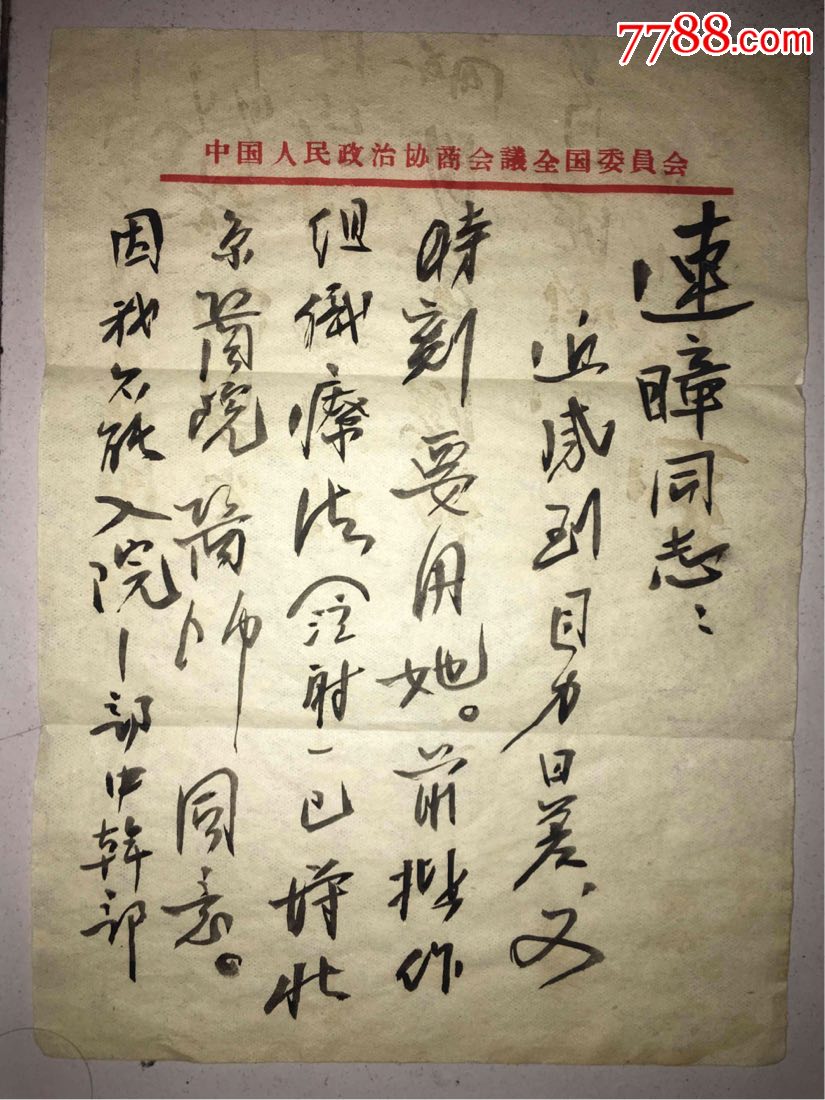 7788.com
中国人民政治协商会議全国委員会
連暲同志：
近感到目力日差，又
時刻要用她。前拟作
组織療法（注射）已得北
京醫院醫師同意。
因我不能入院，部中幹部